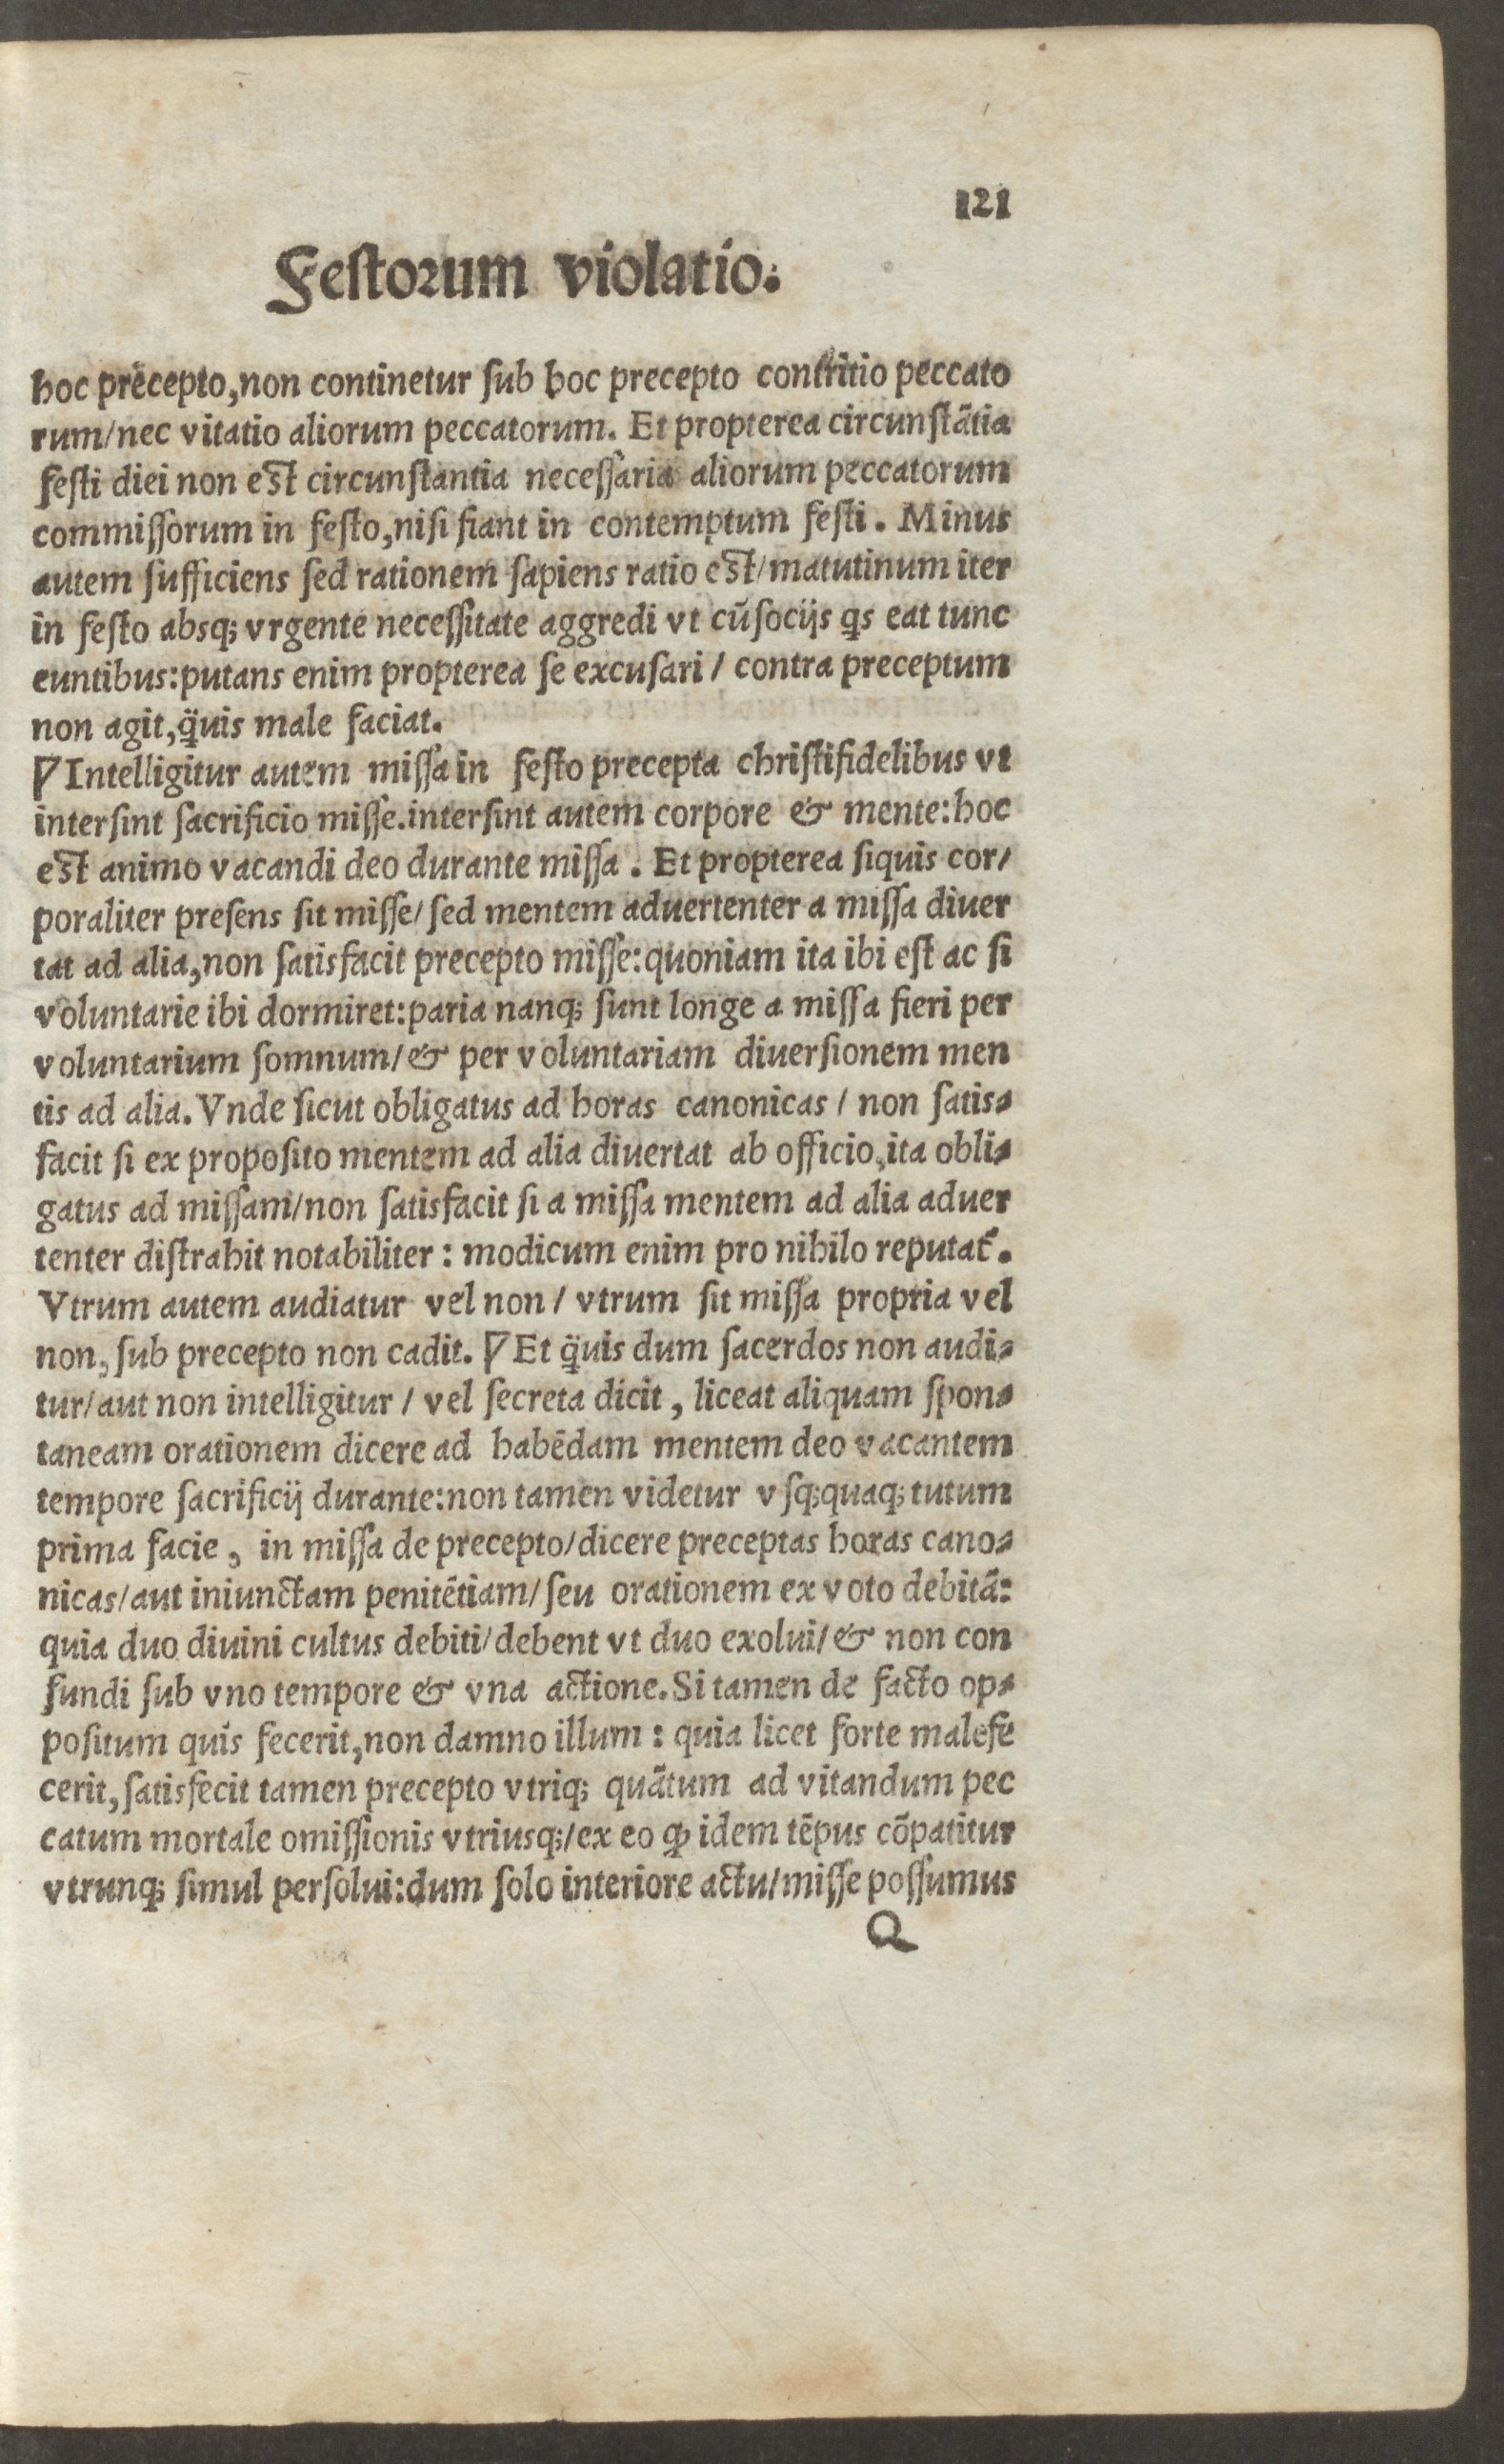 121
Feſtorum violatio.
hoc precepto, non continetur ſub hoc precepto contritio peccato
rum/nec vitatio aliorum peccatorum. Et propterea circunſtãtia
feſti diei non eſt circunſtantia neceſſaria aliorum peccatorum
commiſſorum in feſto, niſi fiant in contemptum feſti. Minus
autem ſufficiens ſed rationem ſapiens ratio eſt/matutinum iter
in feſto absq; vrgente neceſſitate aggredi vt cũ ſocijs q̃s eat tunc
euntibus: putans enim propterea ſe excuſari / contra preceptum
non agit, q̃uis male faciat.
¶ Intelligitur autem miſſa in feſto precepta chriſtifidelibus vt
interſint ſacrificio miſſe. interſint autem corpore & mente: hoc
eſt animo vacandi deo durante miſſa. Et propterea ſiquis cor/
poraliter preſens ſit miſſe/ ſed mentem aduertenter a miſſa diuer
tat ad alia, non ſatisfacit precepto miſſe: quoniam ita ibi eſt ac ſi
voluntarie ibi dormiret: paria nanq; ſunt longe a miſſa fieri per
voluntarium ſomnum/& per voluntariam diuerſionem men
tis ad alia. Vnde ſicut obligatus ad horas canonicas / non ſatis⸗
facit ſi ex propoſito mentem ad alia diuertat ab officio, ita obli⸗
gatus ad miſſam/non ſatisfacit ſi a miſſa mentem ad alia aduer
tenter diſtrahit notabiliter: modicum enim pro nihilo reputat᷑.
Vtrum autem audiatur vel non / vtrum ſit miſſa propria vel
non, ſub precepto non cadit. ¶ Et q̃uis dum ſacerdos non audi⸗
tur/aut non intelligitur / vel ſecreta dicit, liceat aliquam ſpon⸗
taneam orationem dicere ad habẽdam mentem deo vacantem
tempore ſacrificij durante: non tamen videtur vſq;quaq; tutum
prima facie, in miſſa de precepto/dicere preceptas horas cano⸗
nicas/aut iniunctam penitẽtiam/ſeu orationem ex voto debitã:
quia duo diuini cultus debiti/debent vt duo exolui/& non con
fundi ſub vno tempore & vna actione. Si tamen de facto op⸗
poſitum quis fecerit, non damno illum: quia licet forte malefe
cerit, ſatisfecit tamen precepto vtriq; quãtum ad vitandum pec
catum mortale omiſſionis vtriusq;/ex eo ꝙ idem tẽpus cõpatitur
vtrunq; ſimul perſolui: dum ſolo interiore actu/miſſe poſſumus
Q